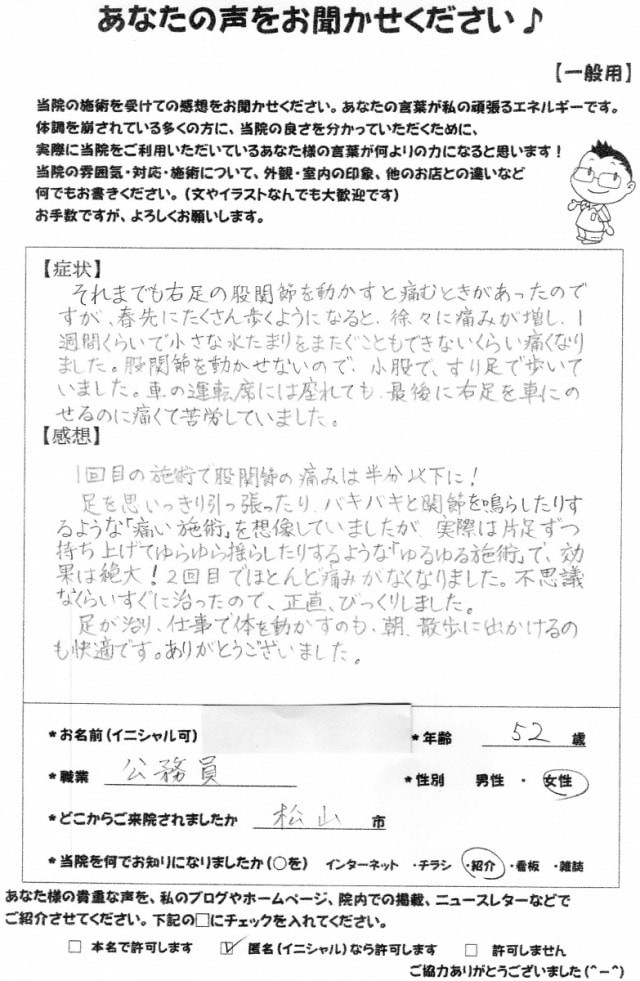 あなたの声をお聞かせください♪
【一般用】
当院の施術を受けての感想をお聞かせください。あなたの言葉が私の頑張るエネルギーです。
体調を崩されている多くの方に、当院の良さを分かっていただくために、
実際に当院をご利用いただいているあなた様の言葉が何よりの力になると思います！
当院の雰囲気・対応・施術について、外観・室内の印象、他のお店との違いなど
何でもお書きください。（文やイラストなんでも大歓迎です）
お手数ですが、よろしくお願いします。
【症状】
それまでも右足の股関節を動かすと痛むときがあったので
すが、春先にたくさん歩くようになると、徐々に痛みが増し、1
週間くらいで小さな水たまりをまたぐこともできないくらい痛くなり
ました。股関節を動かせないので、小股で、すり足で歩いて
いました。車の運転席には座れても、最後に右足を車にの
せるのに痛くて苦労していました。
【感想】
1回目の施術で股関節の痛みは半分以下に！
足を思いっきり引っ張ったり、バキバキと関節を鳴らしたりす
るような「痛い施術」を想像していましたが、実際は片足ずつ
持ち上げてゆらゆら揺らしたりするような「ゆるゆる施術」で、効
果は絶大！2回目でほとんど痛みがなくなりました。不思議
なくらいすぐに治ったので、正直、びっくりしました。
足が治り、仕事で体を動かすのも、朝、散歩に出かけるの
も快適です。ありがとうございました。
*お名前（イニシャル可） *年齢 52 歳
*職業 公務員 *性別 男性 ・ 女性
*どこからご来院されましたか 松山 市
*当院を何でお知りになりましたか（○を） インターネット ・チラシ ・紹介 ・看板 ・雑誌
あなた様の貴重な声を、私のブログやホームページ、院内での掲載、ニュースレターなどで
ご紹介させてください。下記の□にチェックを入れてください。
□ 本名で許可します ☑ 匿名（イニシャル）なら許可します □ 許可しません
ご協力ありがとうございました(^-^)